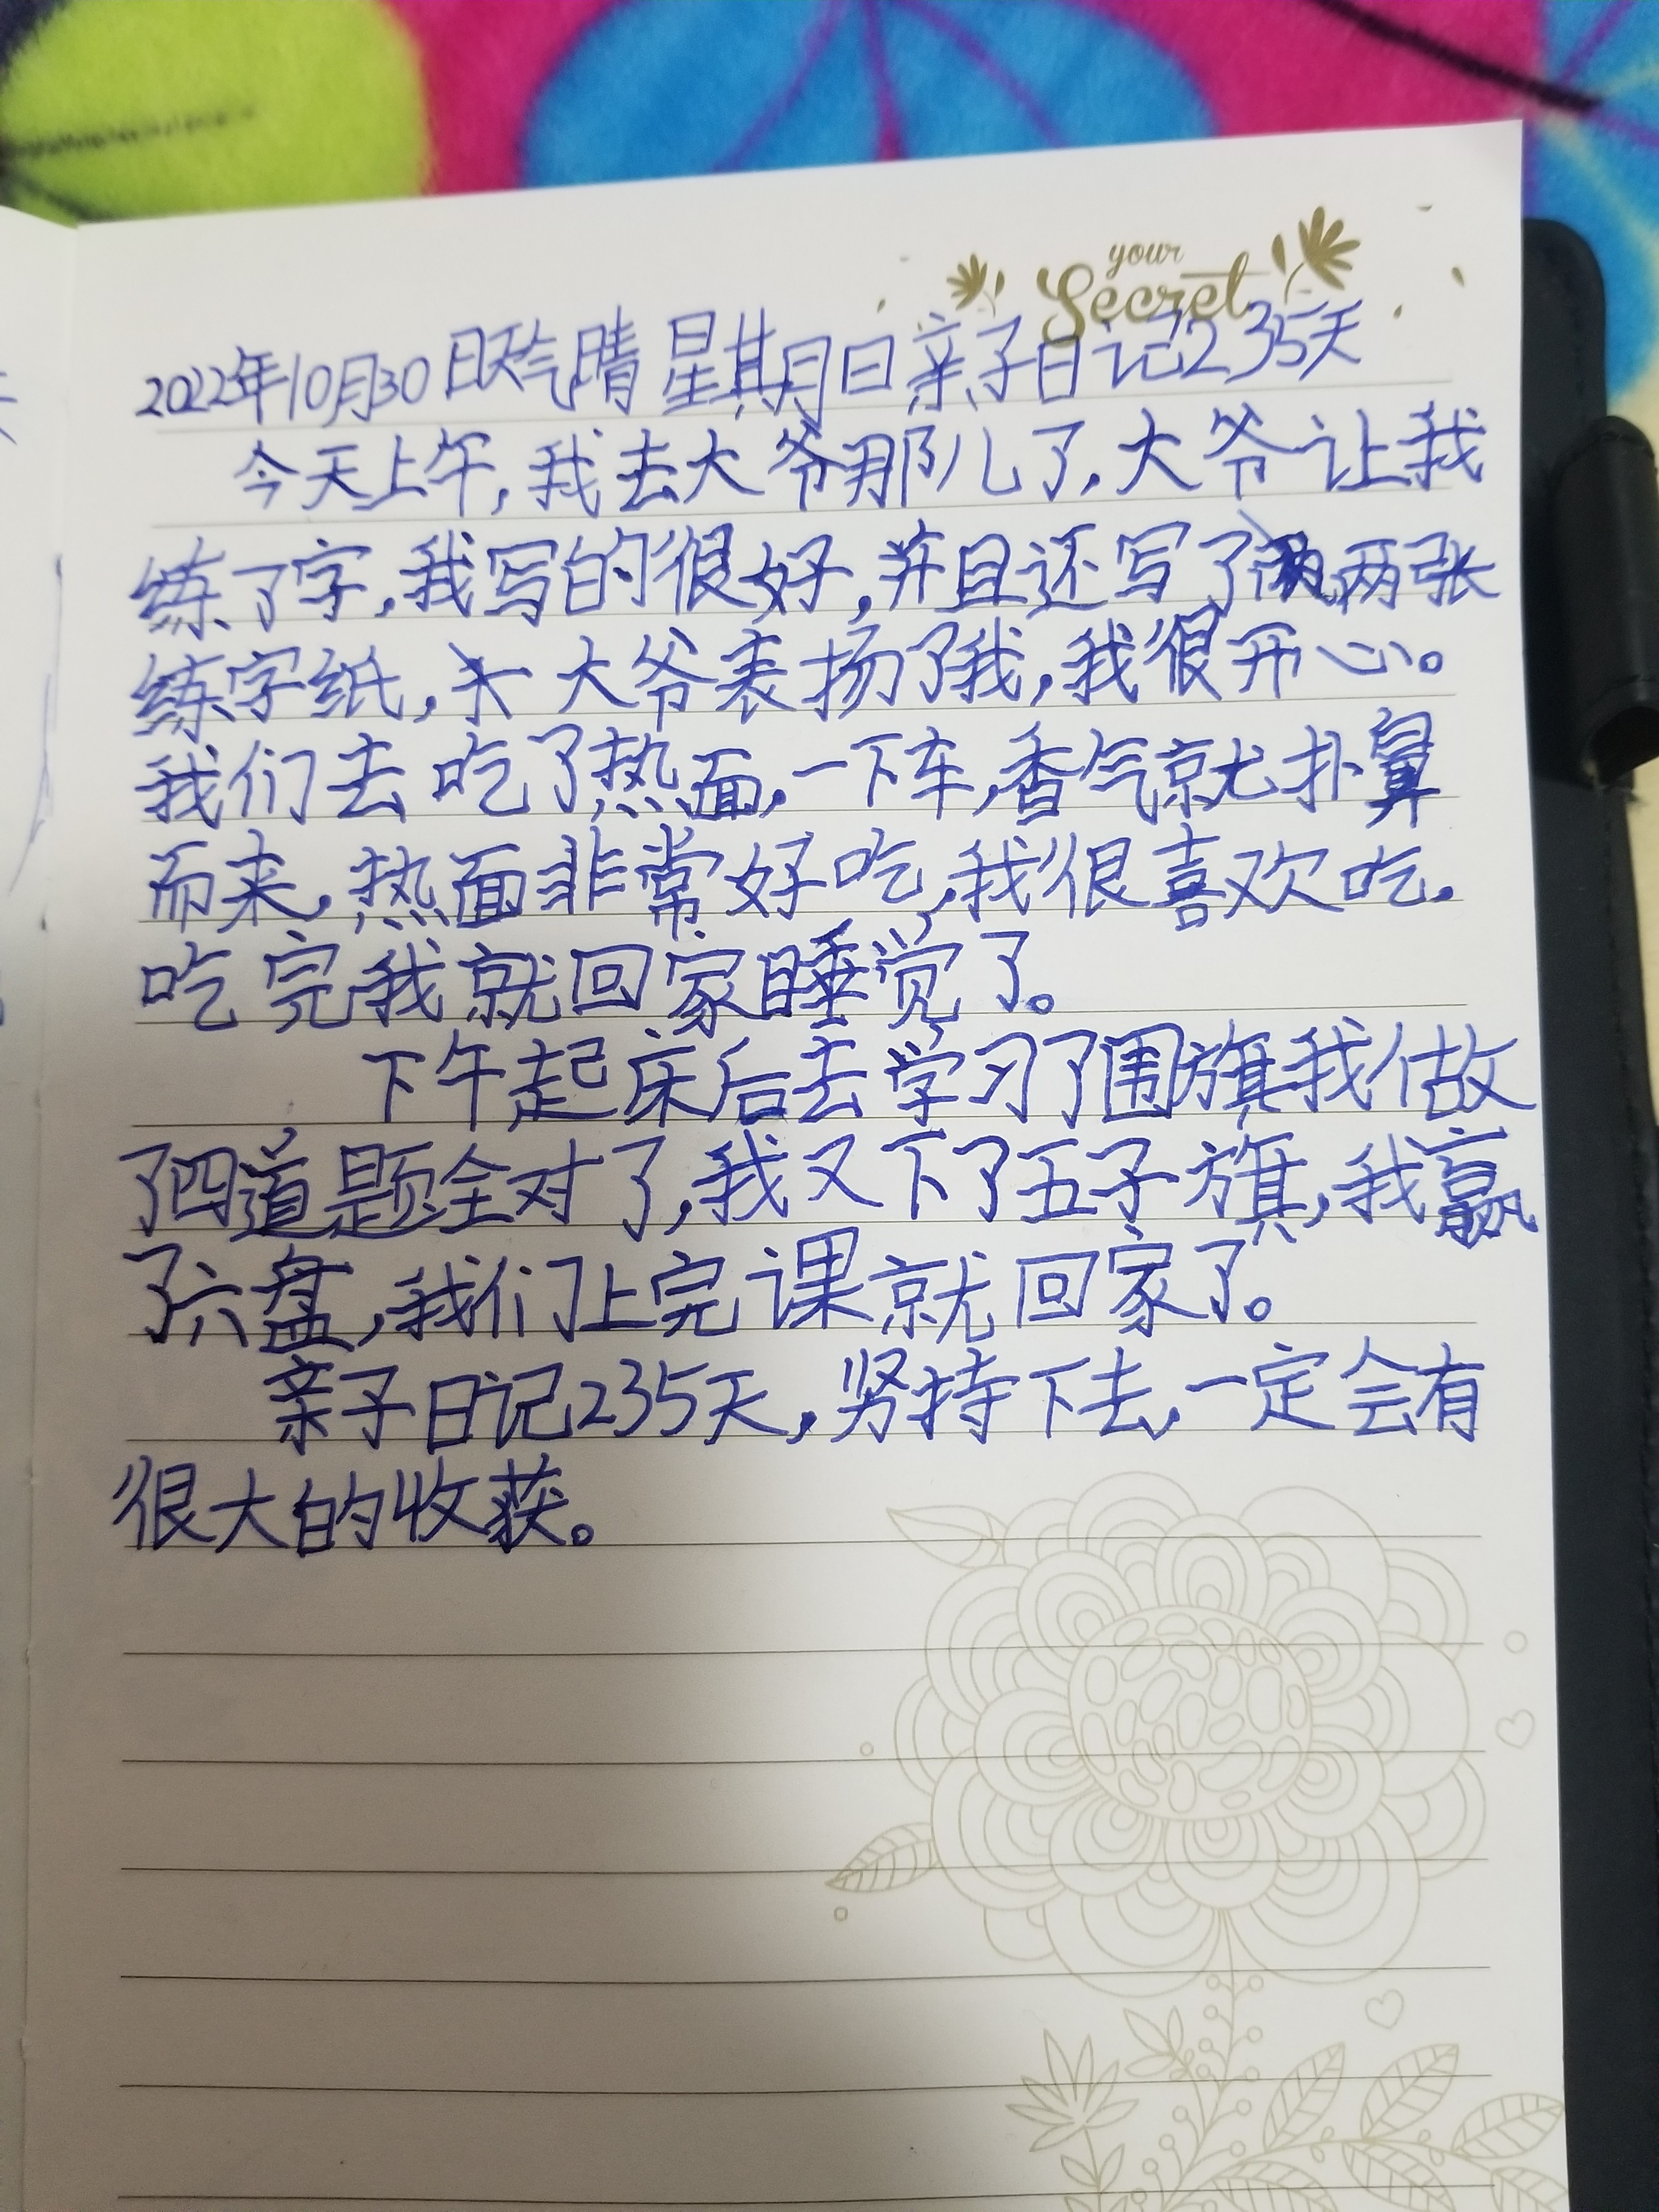 your
Secret
2022年10月30日天气晴 星期日亲子日记235天
今天上午,我去大爷那儿了,大爷让我
练了字,我写的很好,并且还写了两张
练字纸,大爷表扬了我,我很开心。
我们去吃了热面,一下车,香气就扑鼻
而来,热面非常好吃,我很喜欢吃.
吃完我就回家睡觉了。
下午起床后去学习了围旗我做
了四道题全对了,我又下了五子旗,我赢
了六盘,我们上完课就回家了。
亲子日记235天,坚持下去,一定会有
很大的收获。